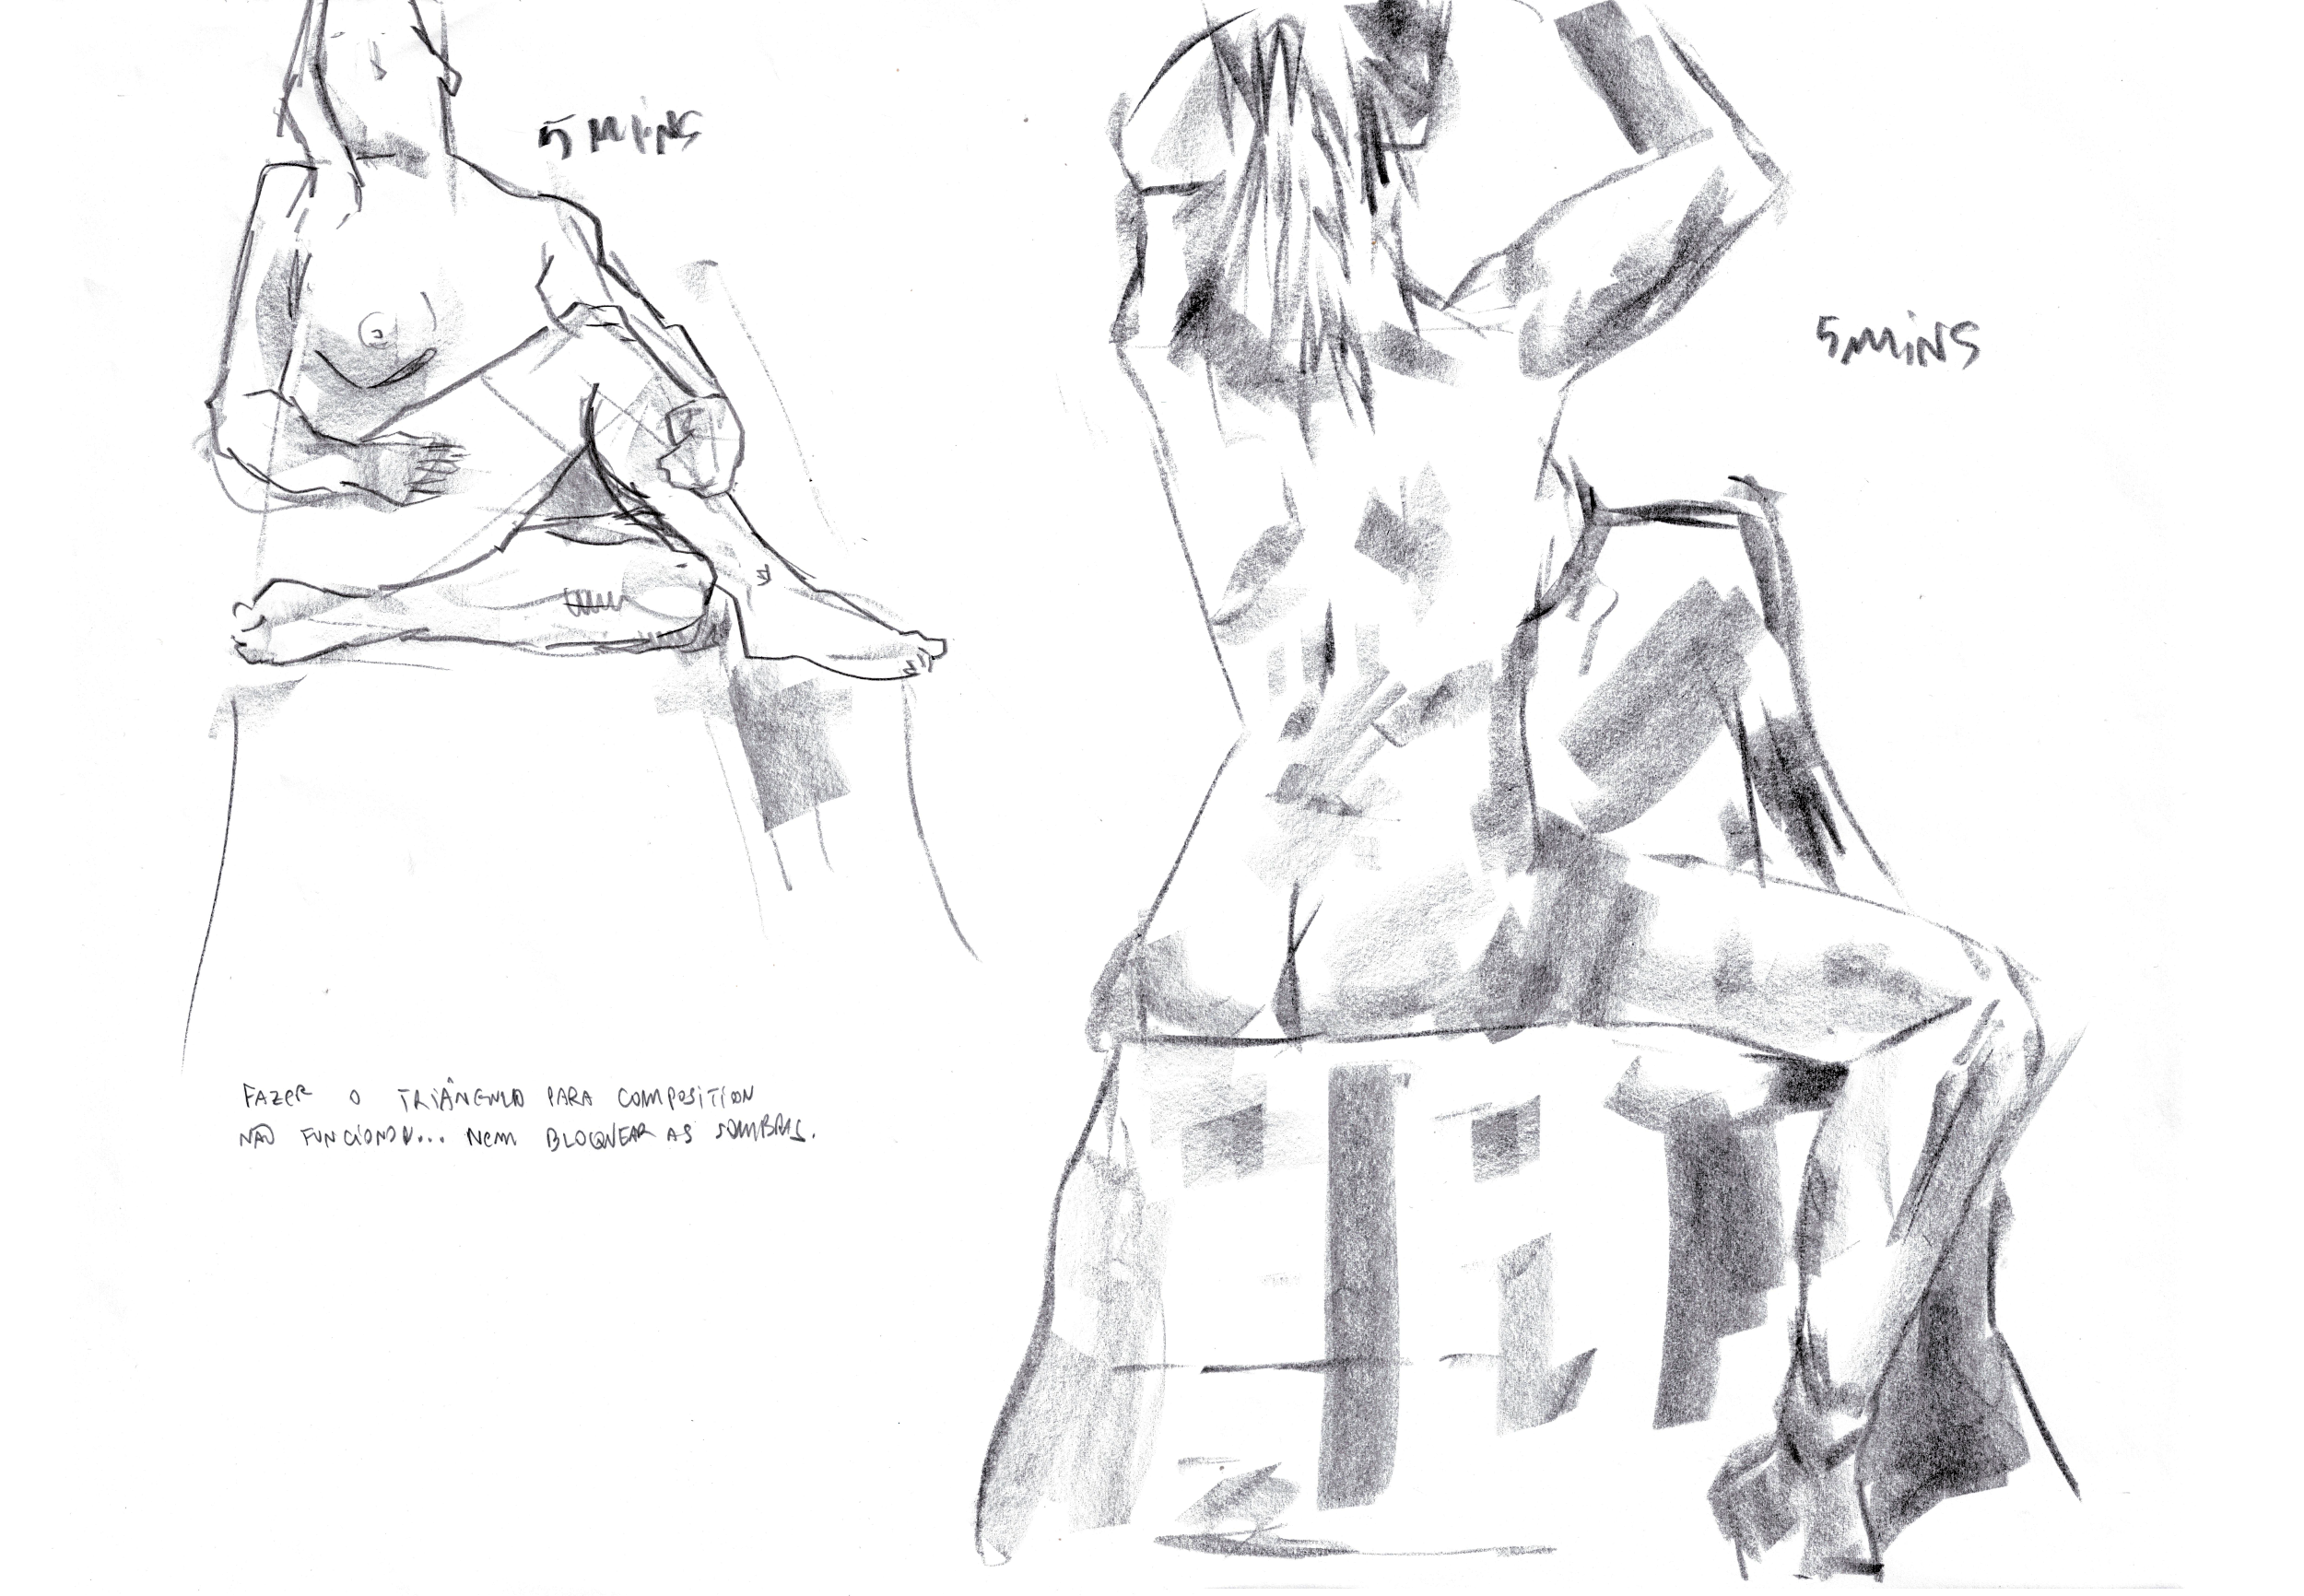 5 MiNS
5 MiNS
FAZER O TRIÂNGULO PARA COMPOSITION
NÃO FUNCIONOU... NEM BLOQUEAR AS SOMBRAS.